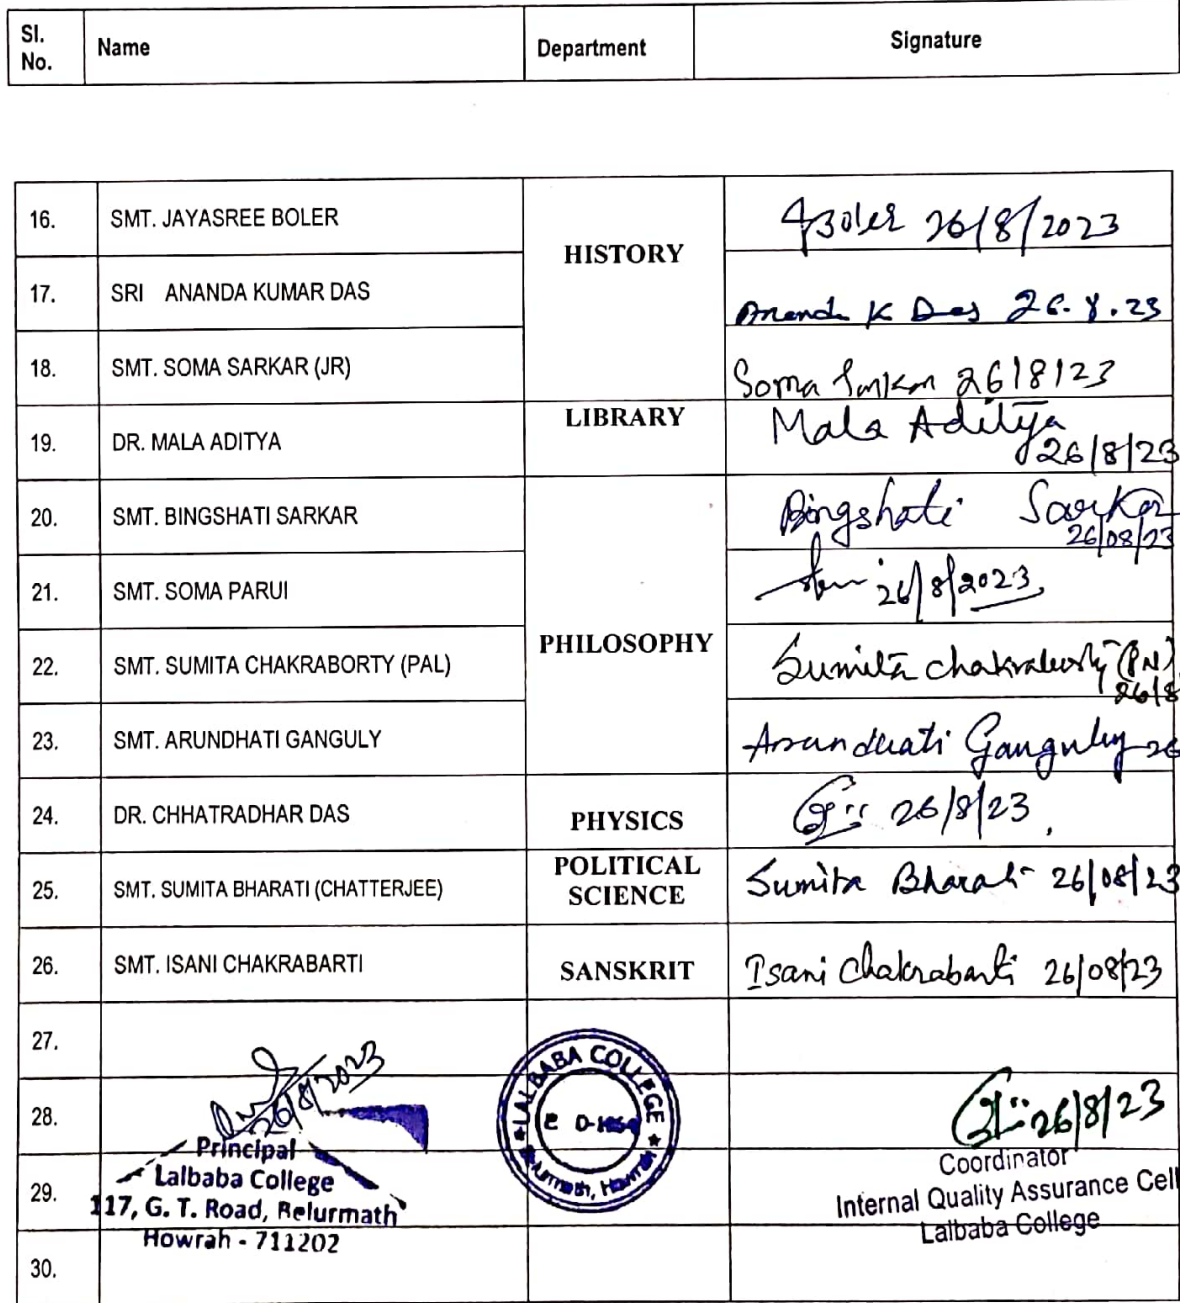 Sl. No. Name Department Signature
16. SMT. JAYASREE BOLER HISTORY JBoler 26/8/2023
17. SRI ANANDA KUMAR DAS Ananda K Das 26.8.23
18. SMT. SOMA SARKAR (JR) Soma Sarkar 26/8/23
19. DR. MALA ADITYA LIBRARY Mala Aditya 26/8/23
20. SMT. BINGSHATI SARKAR PHILOSOPHY Bingshati Sarkar 26/08/23
21. SMT. SOMA PARUI 26/8/2023
22. SMT. SUMITA CHAKRABORTY (PAL) Sumita Chakraborty 26/8
23. SMT. ARUNDHATI GANGULY Arundhati Ganguly 26
24. DR. CHHATRADHAR DAS PHYSICS 26/8/23
25. SMT. SUMITA BHARATI (CHATTERJEE) POLITICAL SCIENCE Sumita Bharati 26/08/23
26. SMT. ISANI CHAKRABARTI SANSKRIT Isani Chakrabarti 26/08/23
27.
28.
29.
30.
26/8/2023
Principal
Lalbaba College
117, G. T. Road, Belurmath
Howrah - 711202
LALBABA COLLEGE
Belurmath, Howrah
26/8/23
Coordinator
Internal Quality Assurance Cell
Lalbaba College